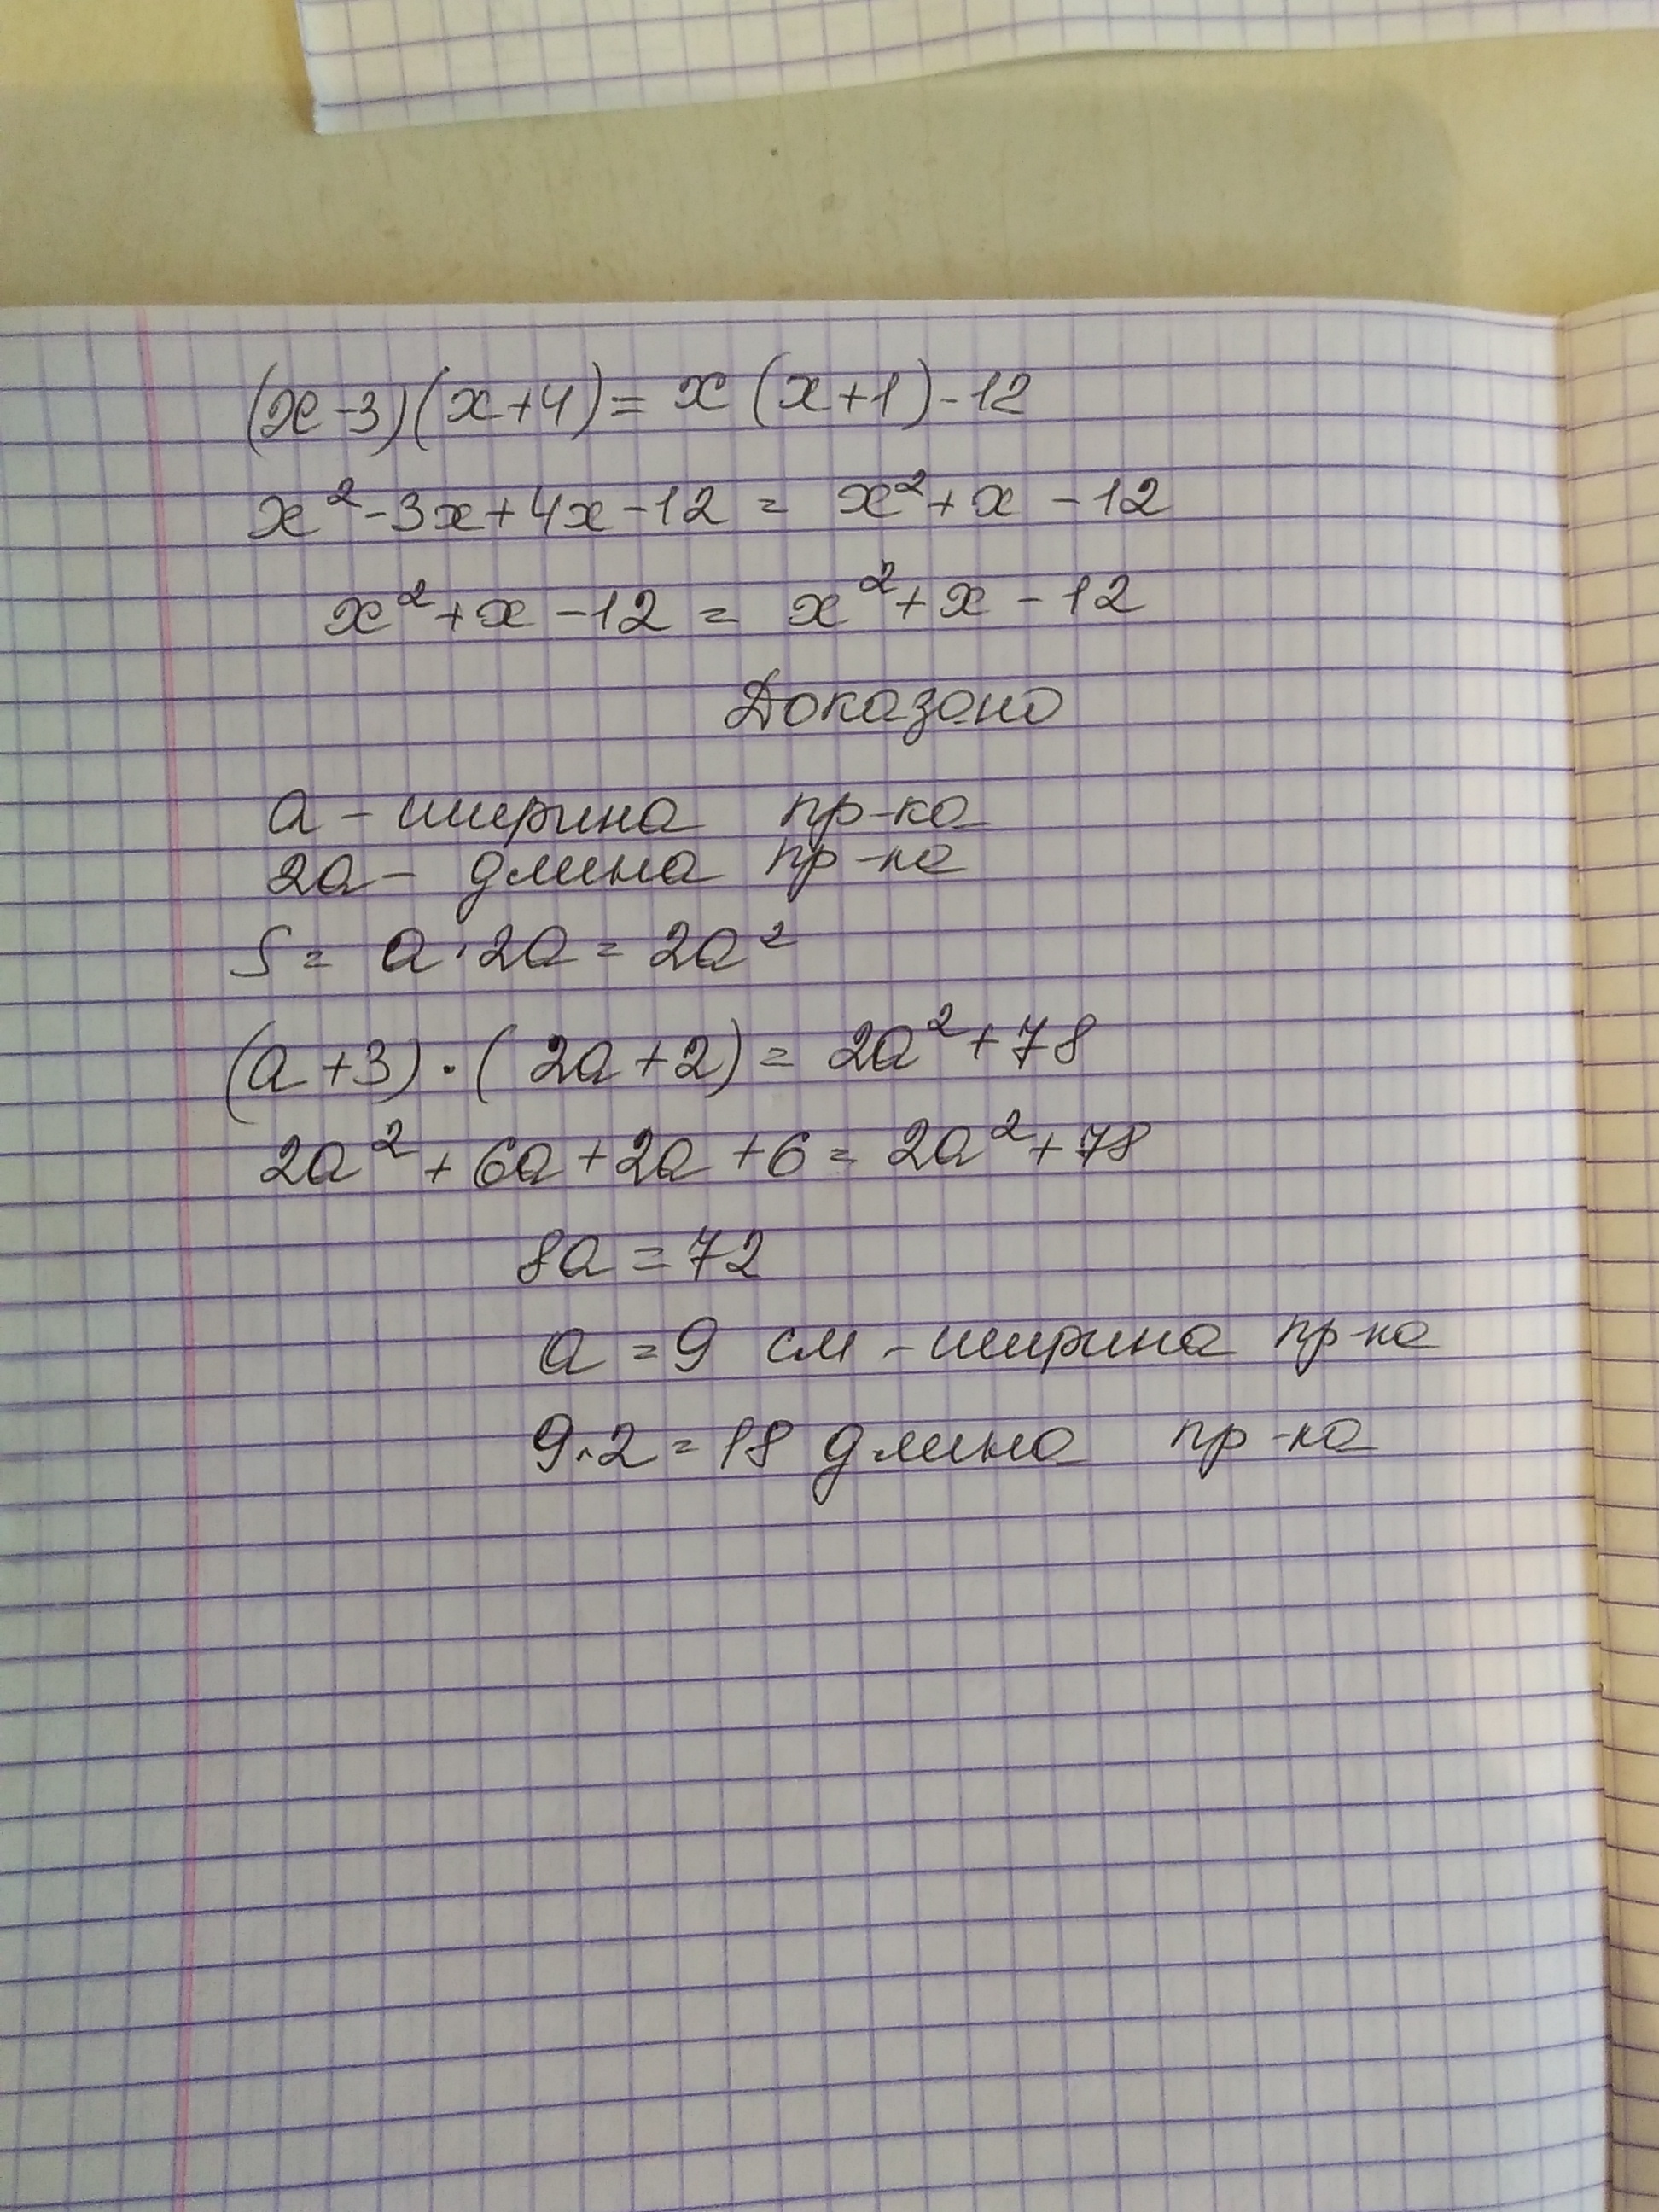 (x-3)(x+4)= x(x+1)-12
x²-3x+4x-12 = x²+x-12
x²+x-12 = x²+x-12
Доказано
a - ширина пр-ка
2a - длина пр-ка
S = a·2a = 2a²
(a+3)·(2a+2)= 2a²+78
2a²+6a+2a+6= 2a²+78
8a=72
a=9 см - ширина пр-ка
9·2=18 длина пр-ка